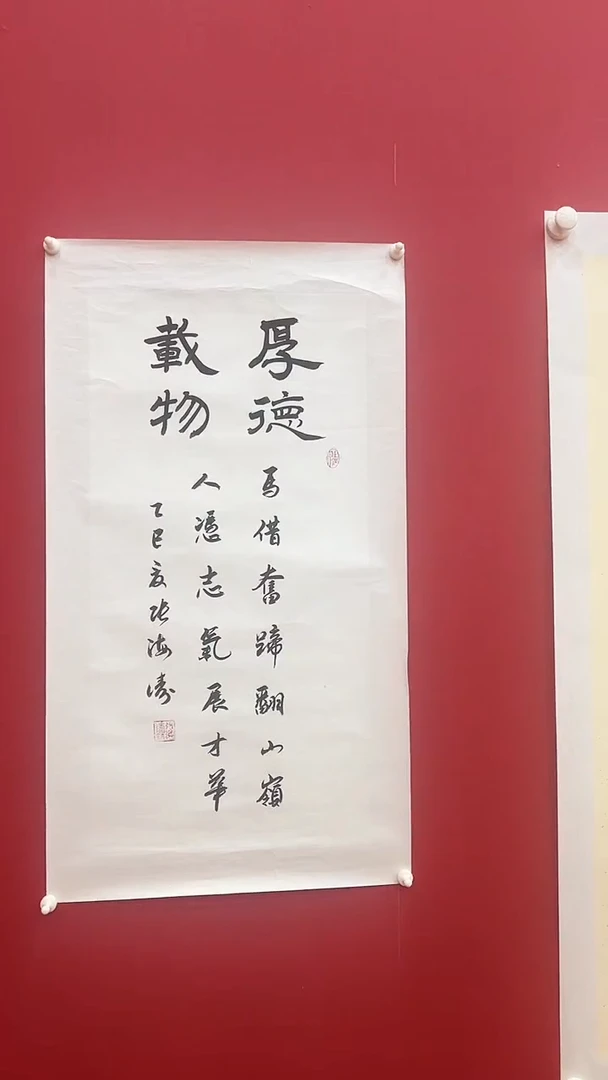 厚德
載物
馬借奮蹄翻山嶺
人憑志氣展才華
乙巳夏張海濤